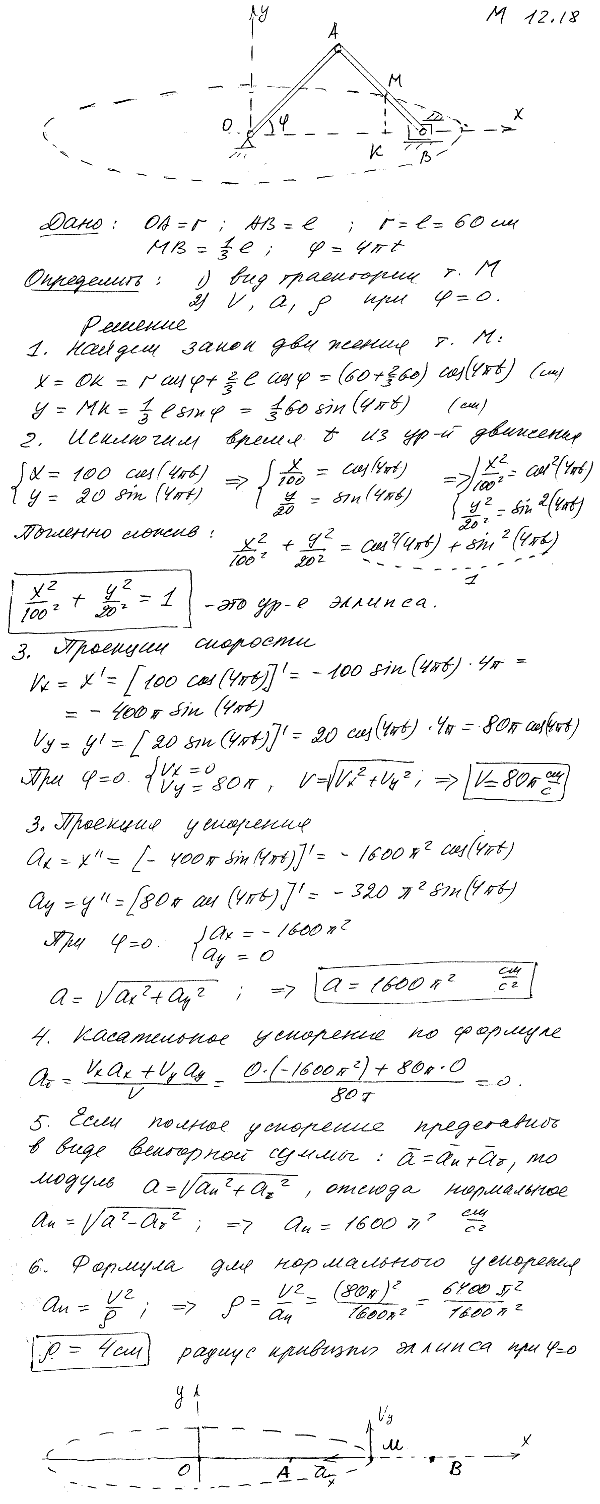 y М 12.18
A
M
O φ x
K B
Дано: OA = r ; AB = l ; r = l = 60 см
MB = 1/3 l ; φ = 4πt
Определить: 1) вид траектории т. М
2) V, a, ρ при φ = 0.
Решение
1. Найдем закон движения т. М:
x = OK = r cos φ + 2/3 l cos φ = (60 + 2/3 60) cos(4πt) (см)
y = MK = 1/3 l sin φ = 1/3 60 sin(4πt) (см)
2. Исключим время t из ур-й движения
{ x = 100 cos(4πt) => { x/100 = cos(4πt) => { x²/100² = cos²(4πt)
y = 20 sin(4πt) y/20 = sin(4πt) y²/20² = sin²(4πt)
Почленно сложив: x²/100² + y²/20² = cos²(4πt) + sin²(4πt)
1
x²/100² + y²/20² = 1 - это ур-е эллипса.
3. Проекции скорости
Vx = x' = [100 cos(4πt)]' = - 100 sin(4πt) · 4π =
= - 400π sin(4πt)
Vy = y' = [20 sin(4πt)]' = 20 cos(4πt) · 4π = 80π cos(4πt)
При φ=0. { Vx = 0 Vy = 80π , V = √(Vx² + Vy²) ; => V = 80π см/с
3. Проекция ускорения
ax = x'' = [- 400π sin(4πt)]' = - 1600π² cos(4πt)
ay = y'' = [80π cos(4πt)]' = - 320 π² sin(4πt)
При φ=0. { ax = - 1600π² ay = 0
a = √(ax² + ay²) ; => a = 1600π² см/с²
4. Касательное ускорение по формуле
aτ = (Vx ax + Vy ay)/V = (0·(-1600π²) + 80π·0)/80π = 0.
5. Если полное ускорение представить
в виде векторной суммы: ā = ān + āτ, то
модуль a = √(an² + aτ²) , отсюда нормальное
an = √(a² - aτ²) ; => an = 1600 π² см/с²
6. Формула для нормального ускорения
an = V²/ρ ; => ρ = V²/an = (80π)²/1600π² = 6400 π²/1600π²
ρ = 4 см радиус кривизны эллипса при φ=0
y Vy
O A āx M B x